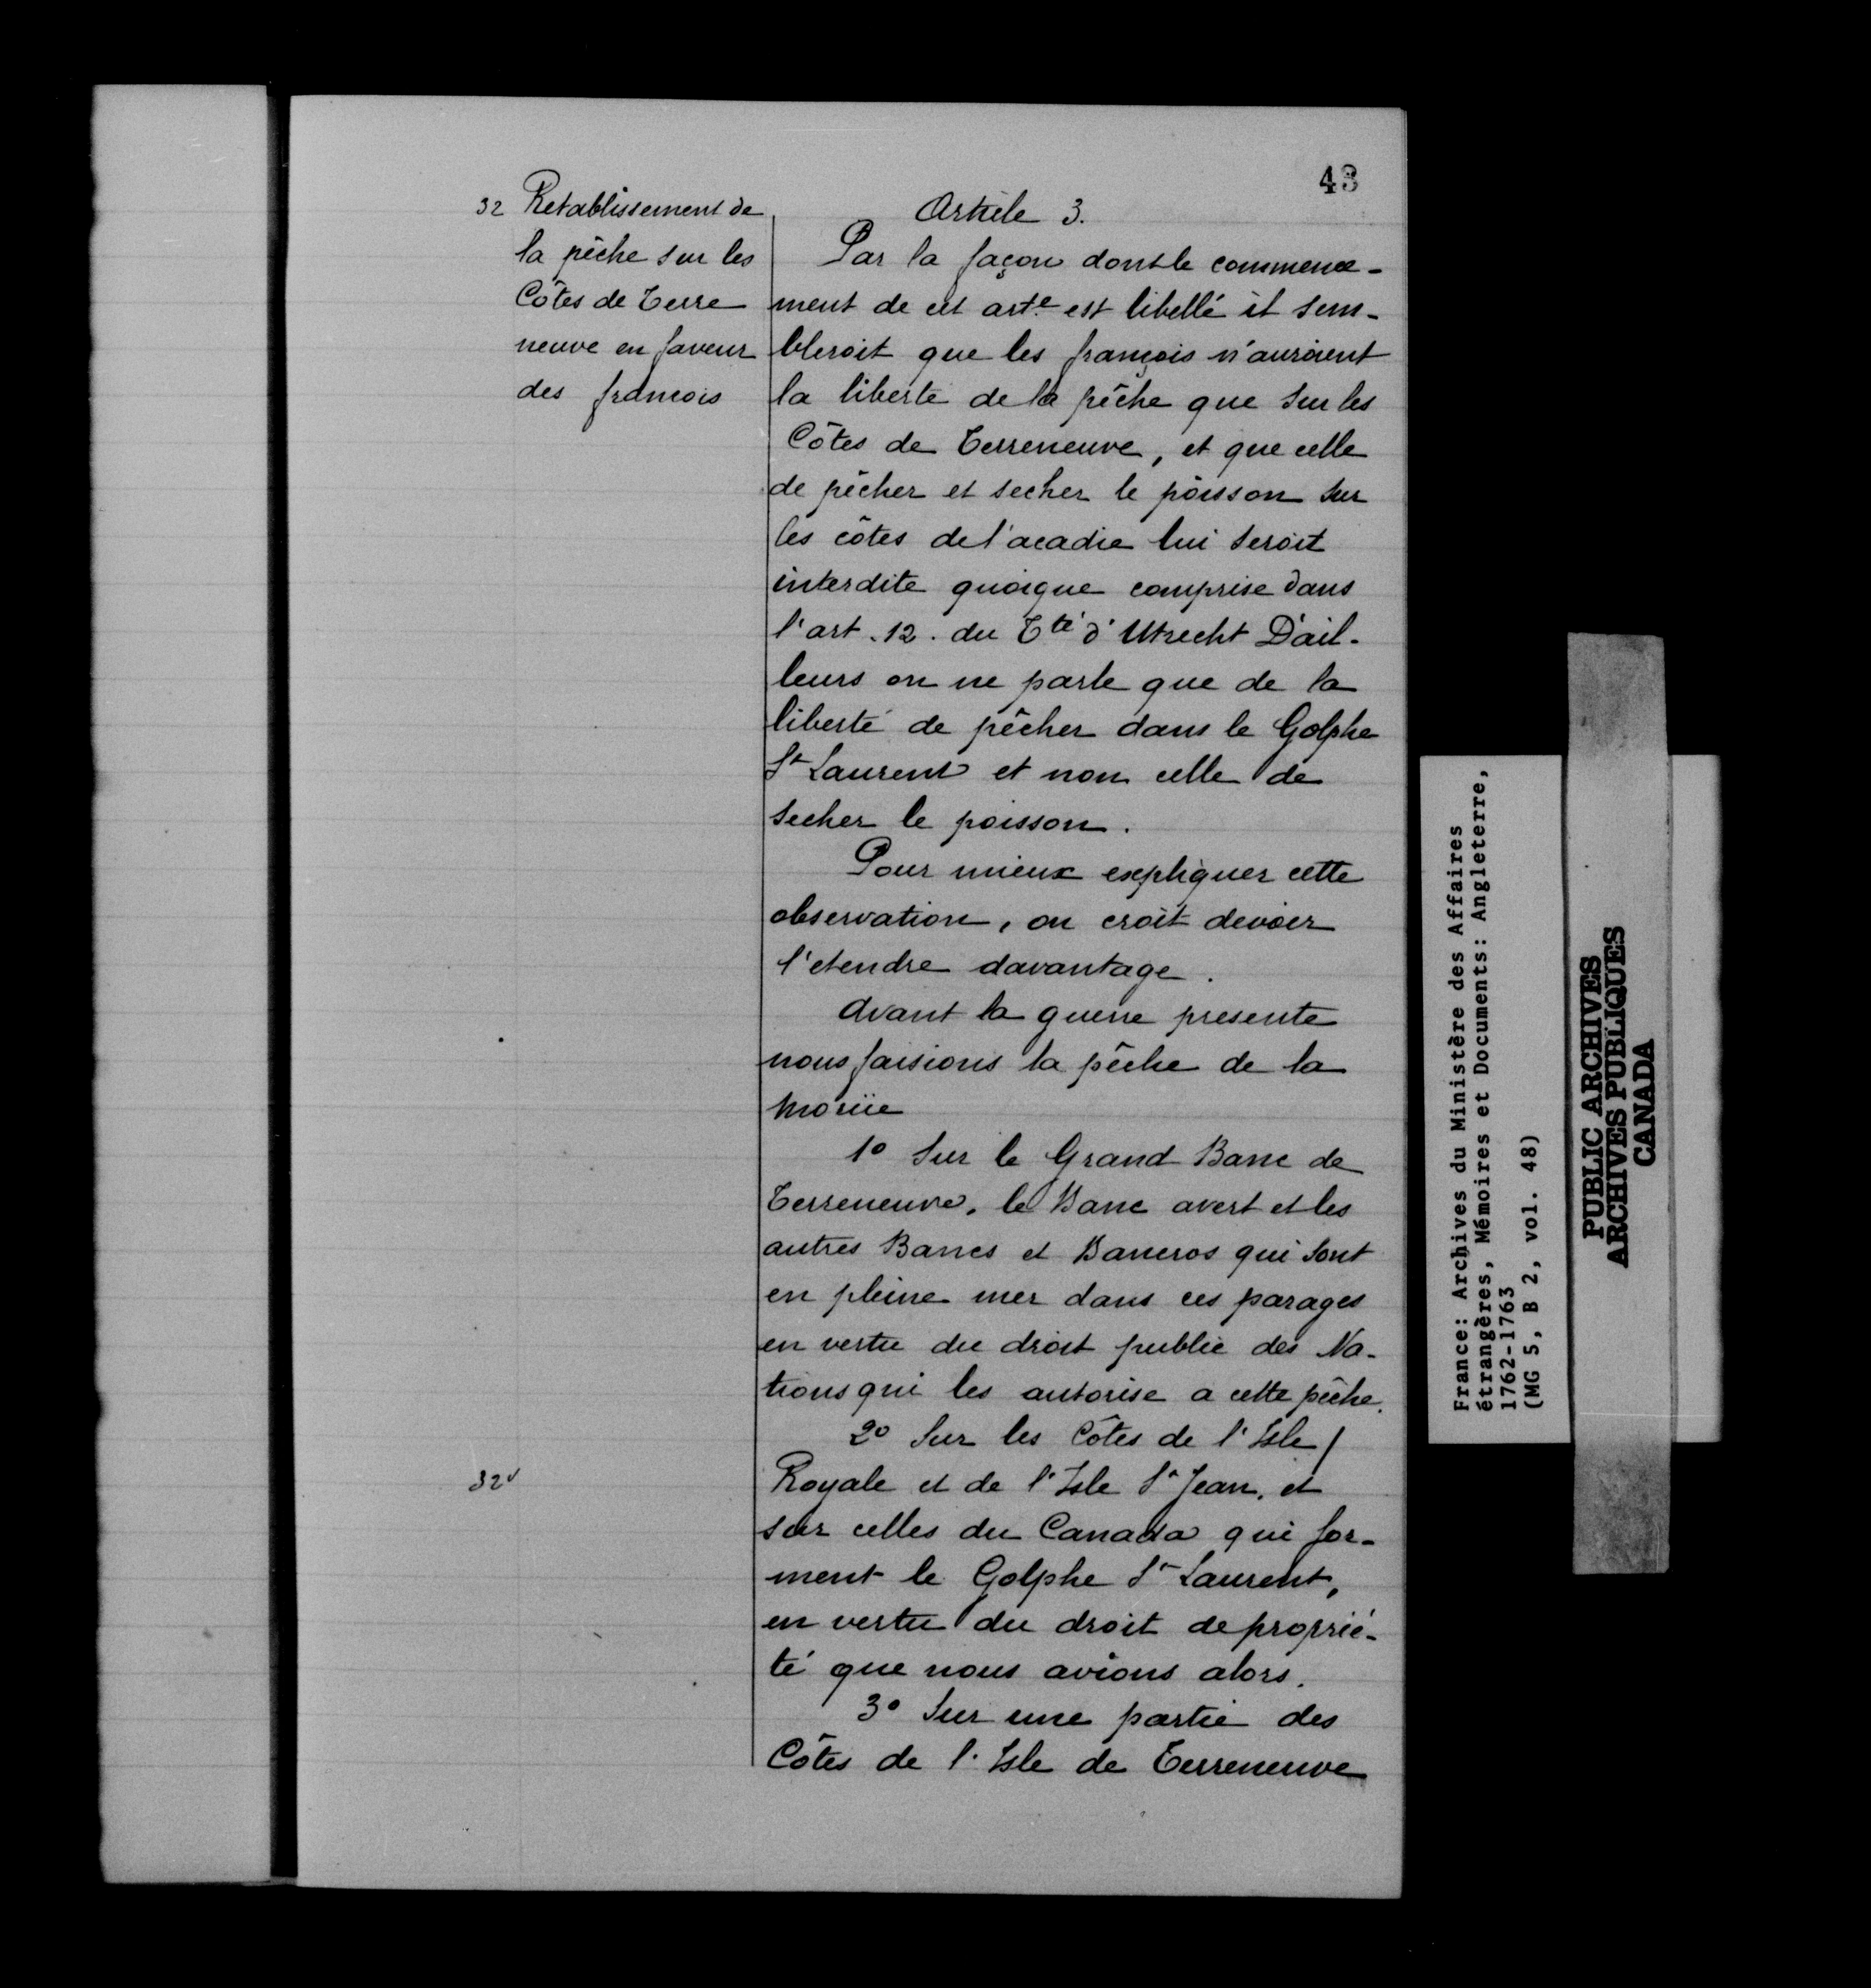 43
32 Retablissement de
la pêche sur les
Côtes de Terre
neuve en faveur
des francois
Article 3.
Par la façon dont le commence-
ment de cet arte. est libellé il sem-
bleroit que les françois n'auroient
la liberté de la pêche que sur les
Côtes de Terreneuve, et que celle
de pêcher et secher le poisson sur
les côtes de l'acadie lui seroit
interdite quoique comprise dans
l'art. 12. du Tté d'Utrecht D'ail-
leurs on ne parle que de la
liberté de pêcher dans le Golphe
St Laurent et non celle de
secher le poisson.
Pour mieux expliquer cette
observation, on croit devoir
l'etendre davantage.
Avant la guerre presente
nous faisions la pêche de la
morüe
1o Sur le Grand Banc de
Terreneuve, le Banc avert et les
autres Bancs et Bancros qui sont
en pleine mer dans ces parages
en vertu du droit public des Na-
tions qui les autorise a cette pêche.
2o Sur les Côtes de l'Isle /
32v Royale et de l'Isle St Jean, et
sur celles du Canada qui for-
ment le Golphe St Laurent,
en vertu du droit de proprié-
té que nous avions alors.
3o Sur une partie des
Côtes de l'Isle de Terreneuve
France: Archives du Ministère des Affaires
étrangères, Mémoires et Documents: Angleterre,
1762-1763
(MG 5, B 2, vol. 48)
PUBLIC ARCHIVES
ARCHIVES PUBLIQUES
CANADA